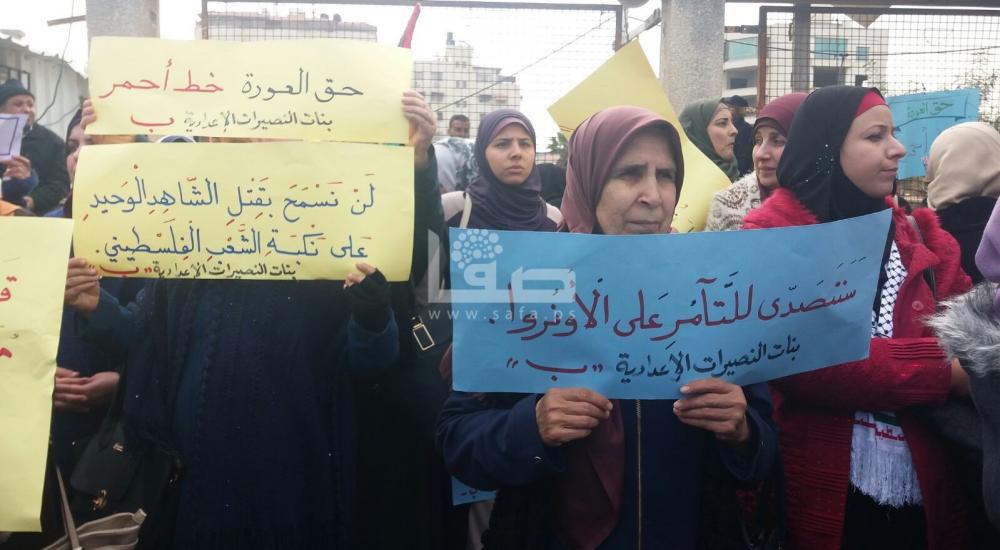 حق العودة خط أحمر
بنات النصيرات الإعدادية "ب"
لَنْ نَسْمَحَ بِقَتْلِ الشَّاهِدِ الْوَحِيدِ
عَلَى نَكْبَةِ الشَّعْبِ الْفِلَسْطِينِي.
بنات النصيرات الإعدادية "ب"
سَنَتَصَدَّى للتَّآمُرِ عَلى الْأُونُرْوا.
بنات النصيرات الإعدادية "ب"
حق العودة
صفا
safa.ps